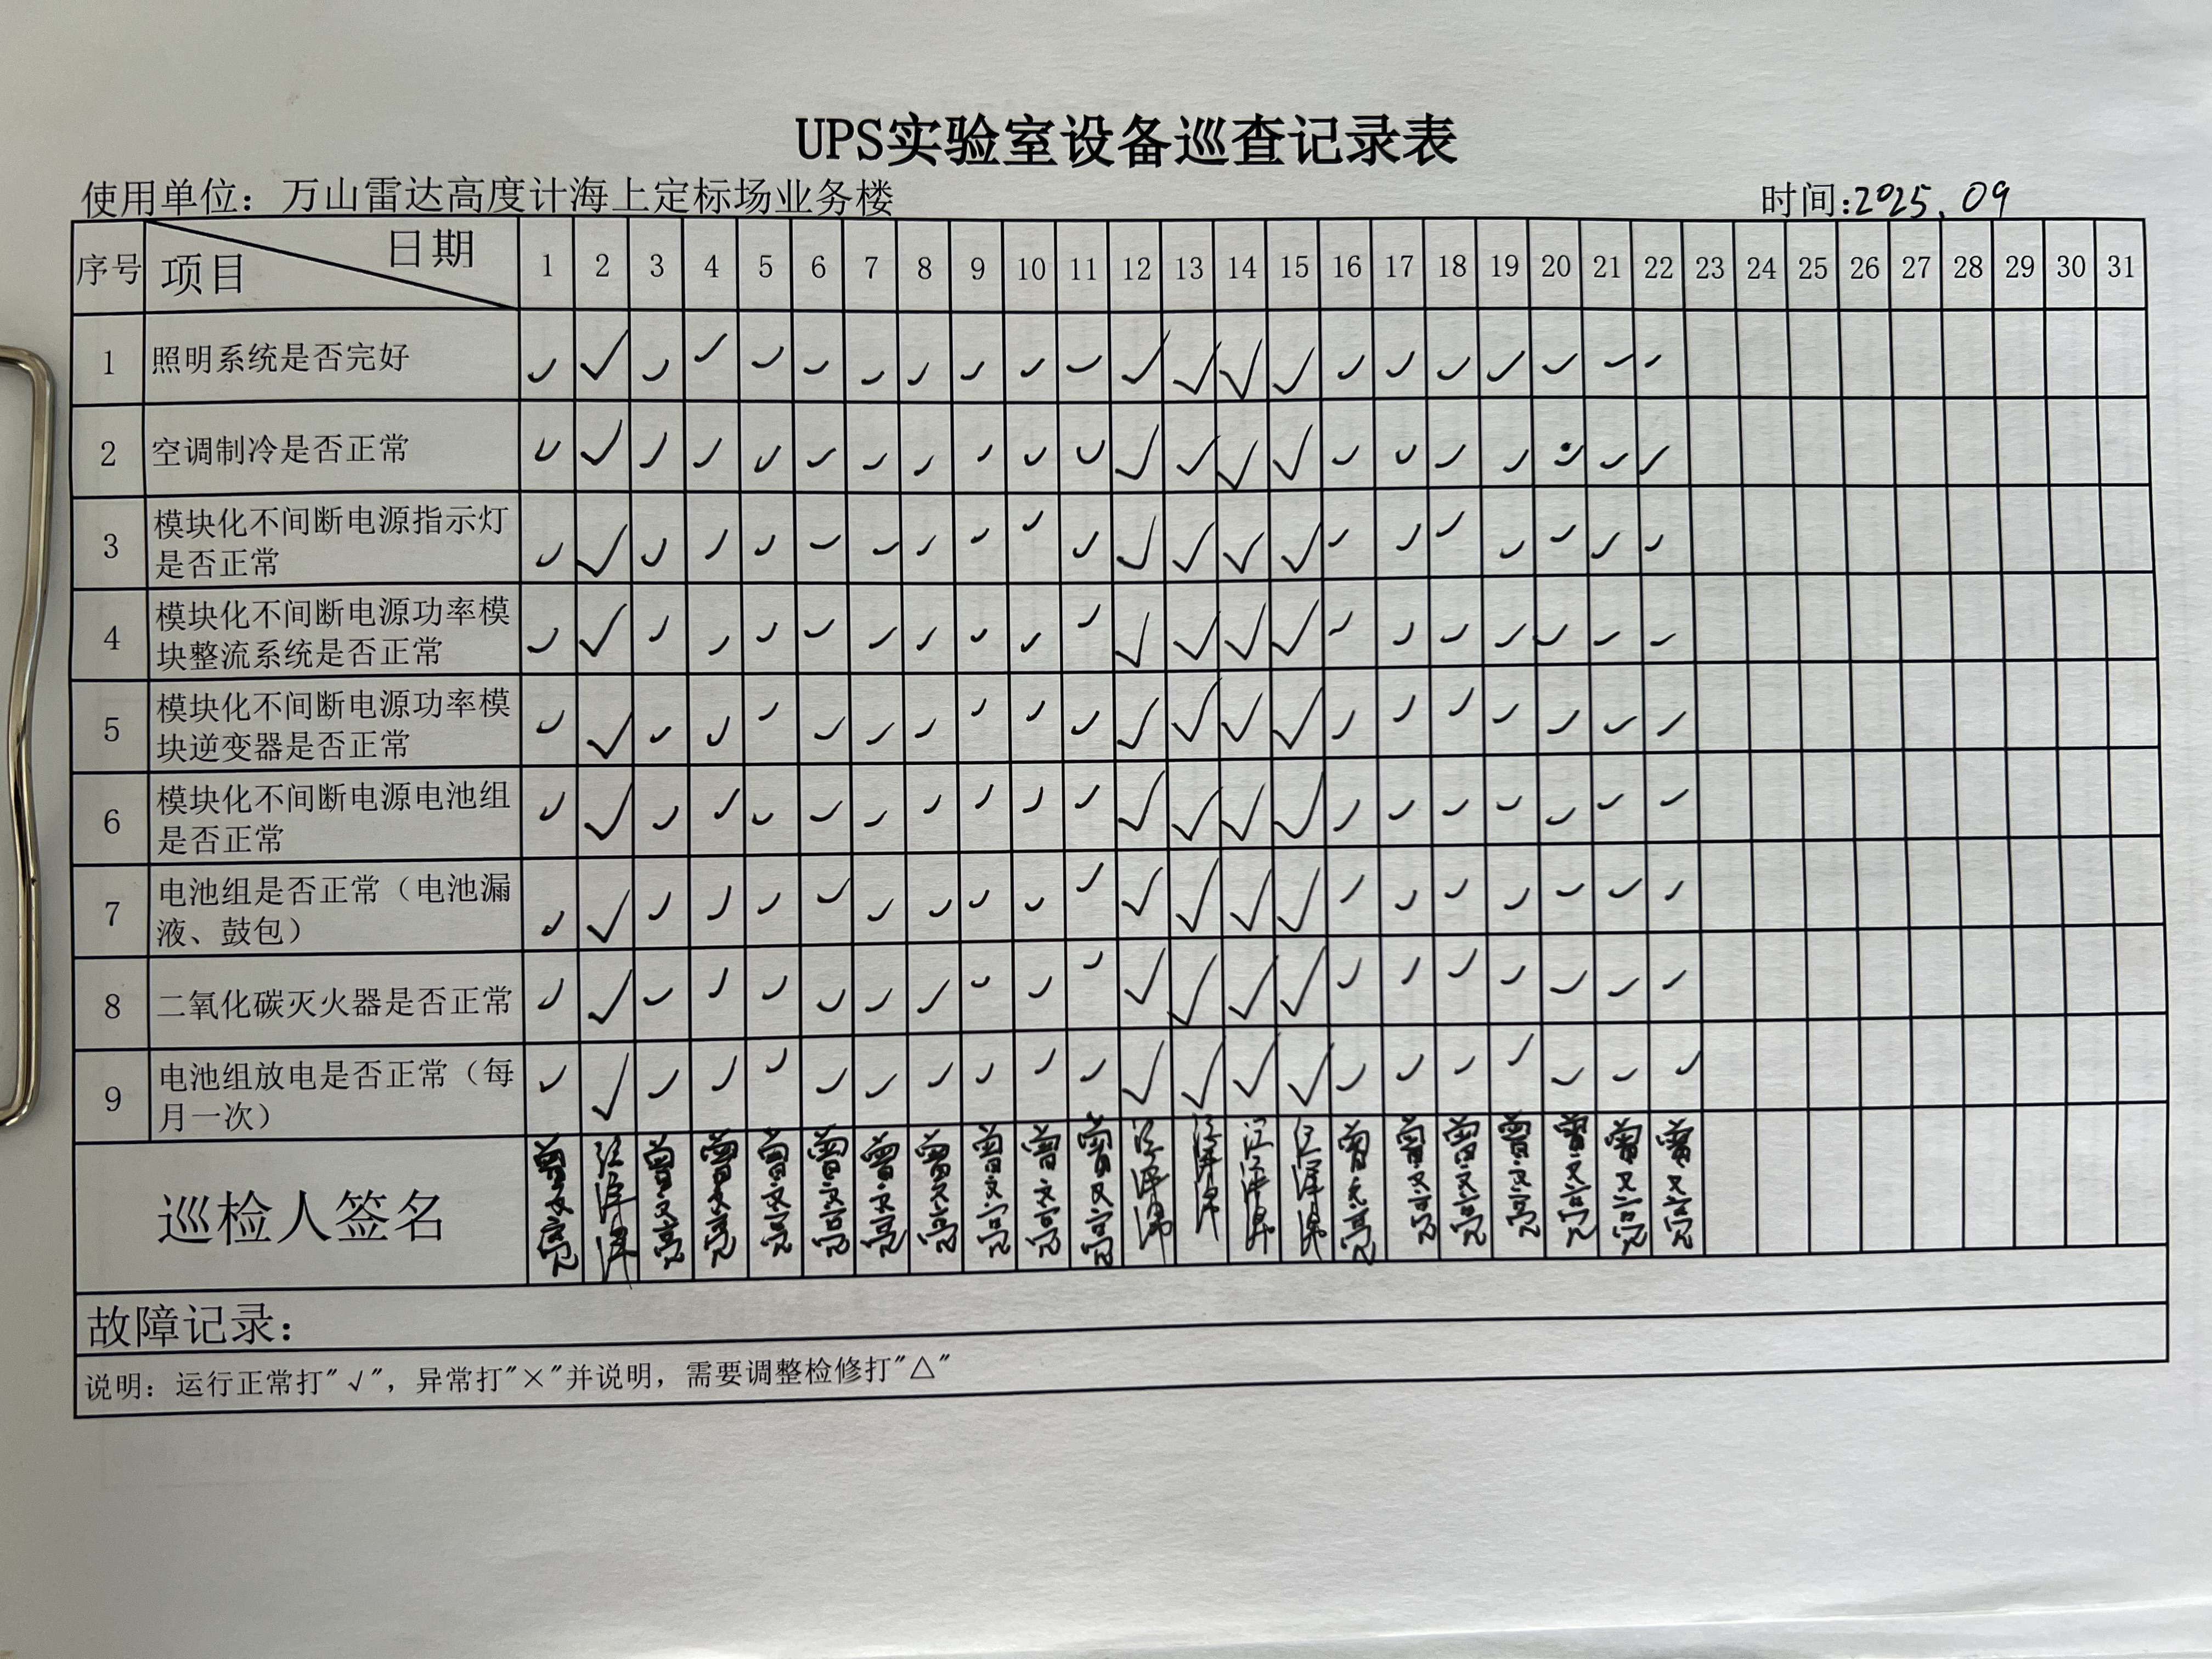 UPS实验室设备巡查记录表
使用单位：万山雷达高度计海上定标场业务楼 时间:2025.09
序号 项目 日期 1 2 3 4 5 6 7 8 9 10 11 12 13 14 15 16 17 18 19 20 21 22 23 24 25 26 27 28 29 30 31
1 照明系统是否完好 ✓ ✓ ✓ ✓ ✓ ✓ ✓ ✓ ✓ ✓ ✓ ✓ ✓ ✓ ✓ ✓ ✓ ✓ ✓ ✓ ✓ ✓
2 空调制冷是否正常 ✓ ✓ ✓ ✓ ✓ ✓ ✓ ✓ ✓ ✓ ✓ ✓ ✓ ✓ ✓ ✓ ✓ ✓ ✓ ✓ ✓ ✓
3 模块化不间断电源指示灯
是否正常 ✓ ✓ ✓ ✓ ✓ ✓ ✓ ✓ ✓ ✓ ✓ ✓ ✓ ✓ ✓ ✓ ✓ ✓ ✓ ✓ ✓ ✓
4 模块化不间断电源功率模
块整流系统是否正常 ✓ ✓ ✓ ✓ ✓ ✓ ✓ ✓ ✓ ✓ ✓ ✓ ✓ ✓ ✓ ✓ ✓ ✓ ✓ ✓ ✓ ✓
5 模块化不间断电源功率模
块逆变器是否正常 ✓ ✓ ✓ ✓ ✓ ✓ ✓ ✓ ✓ ✓ ✓ ✓ ✓ ✓ ✓ ✓ ✓ ✓ ✓ ✓ ✓ ✓
6 模块化不间断电源电池组
是否正常 ✓ ✓ ✓ ✓ ✓ ✓ ✓ ✓ ✓ ✓ ✓ ✓ ✓ ✓ ✓ ✓ ✓ ✓ ✓ ✓ ✓ ✓
7 电池组是否正常（电池漏
液、鼓包） ✓ ✓ ✓ ✓ ✓ ✓ ✓ ✓ ✓ ✓ ✓ ✓ ✓ ✓ ✓ ✓ ✓ ✓ ✓ ✓ ✓ ✓
8 二氧化碳灭火器是否正常 ✓ ✓ ✓ ✓ ✓ ✓ ✓ ✓ ✓ ✓ ✓ ✓ ✓ ✓ ✓ ✓ ✓ ✓ ✓ ✓ ✓ ✓
9 电池组放电是否正常（每
月一次） ✓ ✓ ✓ ✓ ✓ ✓ ✓ ✓ ✓ ✓ ✓ ✓ ✓ ✓ ✓ ✓ ✓ ✓ ✓ ✓ ✓ ✓
巡检人签名 曾文亮 曾文亮 曾文亮 曾文亮 曾文亮 曾文亮 曾文亮 曾文亮 曾文亮 曾文亮 曾文亮 曾文亮 曾文亮 曾文亮 曾文亮 曾文亮 曾文亮
故障记录：
说明：运行正常打"√"，异常打"×"并说明，需要调整检修打"△"